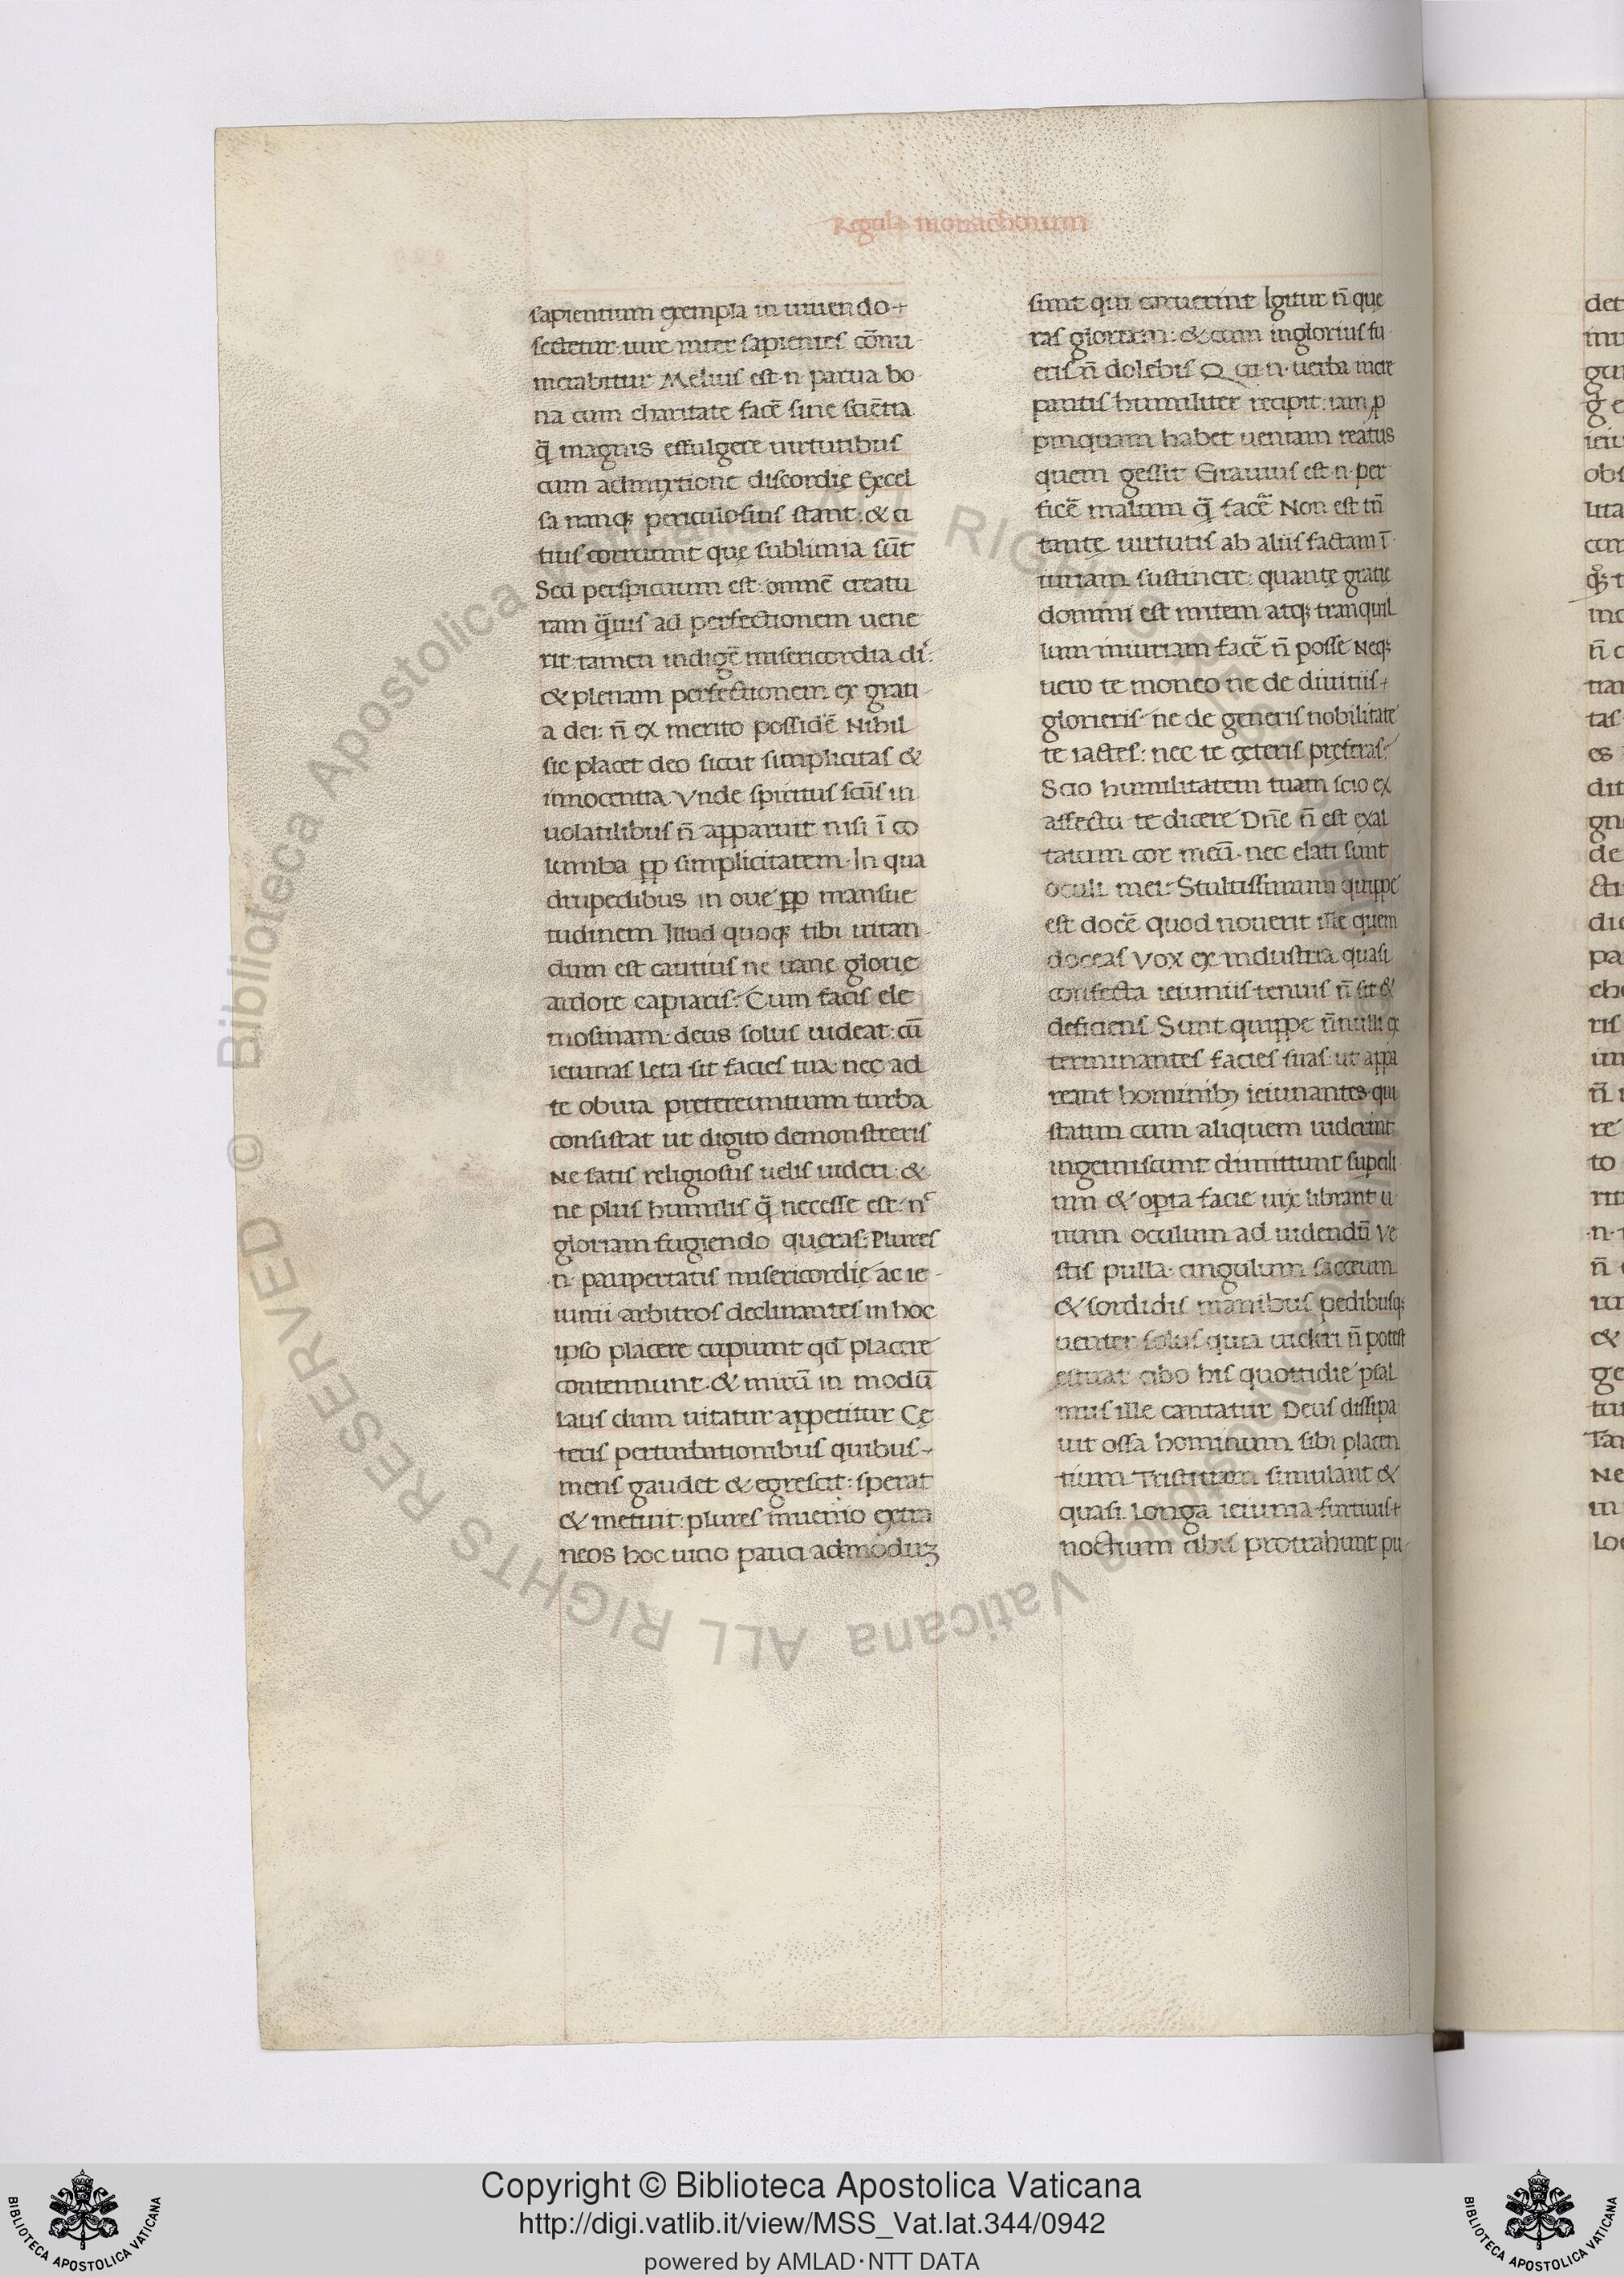 Regula monachorum
sapientium exempla in uiuendo
sectetur. iure inter sapientes cōnu
merabitur Melius est .n. parua bo
na cum charitate facē sine sciētia
q̄ magnis effulgere uirtutibus
cum admixtione discordię Excel
sa nanq; periculosius stant: & ci
tius corruunt que sublimia sūt
Sed perspicuum est. omnē creatu
ram q̄uis ad perfectionem uene
rit: tamen indigē misericordia di:
& plenam perfectionem ex grati
a dei: n̄ ex merito possidē Nihil
sic placet deo sicut simplicitas &
innocentia Vnde spiritus scūs in
uolatilibus n̄ apparuit nisi ī co
lumba pp simplicitatem. In qua
drupedibus in oue pp mansue
tudinem Illud quoq; tibi uitan
dum est cautius ne uane glorię
ardore capiaris. Cum facis ele
mosinam: deus solus uideat: cū
ieiunas leta sit facies tua: nec ad
te obuia pretereuntium turba
consistat ut digito demonstreris
Ne satis religiosus uelis uideri: &
ne plus humilis q̄ necesse est. n
gloriam fugiendo quęras: Plures
.n. paupertatis misericordię ac ie
iunii arbitros declinantes in hoc
ipso placere cupiunt qd̄ placere
contennunt. & mirū in modū
laus dum uitatur appetitur Cę
teris perturbationibus quibus
mens gaudet & egrescit: sperat
& metuit: plures inuenio extra
neos hoc uitio pauci admoduz
sunt qui caruerint Igitur n̄ que
ras gloriam: & cum inglorius fu
eris n̄ dolebis Qui .n. uerba incre
pantis humiliter recipit: iam p
pinquam habet ueniam reatus
quem gessit Grauius est .n. per
ficē malum q̄ facē Non est tn̄
tante uirtutis ab aliis factam ī
iuriam sustinere: quante gratię
domini est mitem atq; tranquil
lum iniuriam facē n̄ posse Neq;
uero te moneo ne de diuitiis
glorieris ne de generis nobilitate
te iactes: nec te cęteris pręferas:
Scio humilitatem tuam scio ex
affectu te dicere Dn̄e n̄ est exal
tatum cor meū. nec elati sunt
oculi mei. Stultissimum quippe
est docē quod nouerit ille quem
doceas Vox ex industria quasi
confecta ieiuniis tenuis n̄ sit &
deficiens Sunt quippe n̄nulli ex
terminantes facies suas: ut appa
reant hominib; ieiunantes qui
statim cum aliquem uiderint
ingemiscunt dimittunt supcili
um & opta facie uix librant u
num oculum ad uidendū Ve
stis pulla. cingulum sacceum
& sordidis manibus pedibusq;
uenter solus quia uideri n̄ potest
estuat cibo his quottidie psal
mus ille cantatur Deus dissipa
uit ossa hominum sibi placen
tium Tristitiam simulant &
quasi longa ieiunia furtiuis
noctium cibis protrahunt pu
© Biblioteca Apostolica Vaticana ALL RIGHTS RESERVED
Copyright © Biblioteca Apostolica Vaticana
http://digi.vatlib.it/view/MSS_Vat.lat.344/0942
powered by AMLAD·NTT DATA
BIBLIOTECA APOSTOLICA VATICANA
BIBLIOTECA APOSTOLICA VATICANA